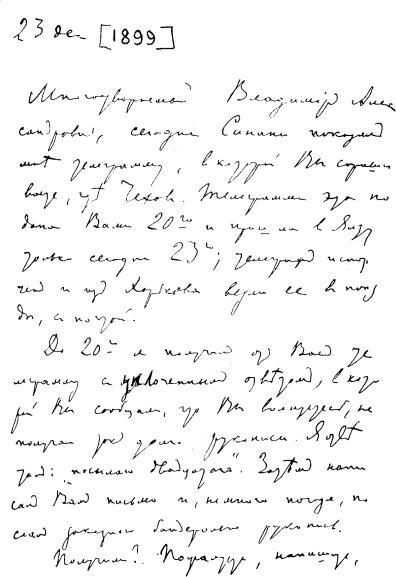 23 дек [1899]
Многоуважаемый Владимір Алек
сандровичъ, сегодня Синани показал
мнѣ телеграмму, въ которой Вы спраши
ваете, гдѣ Чехов. Телеграмма эта по
дана Вами 20го и пришла в Ялту
только сегодня 23го; телеграф испор
чен и из Харькова везли ее в поез
де, с почтой.
До 20го я получил от Вас те
леграмму с уплоченным отвѣтом, в кото
рой Вы сообщали, что Вы волнуетесь, не
получая так долго рукописи. Я отвѣ
тил: "посылаю двадцатого". Затѣм напи
сал Вам письмо и, немного погодя, по
слал заказною бандеролью рукопись.
Получили? Пожалуйста, напишите,